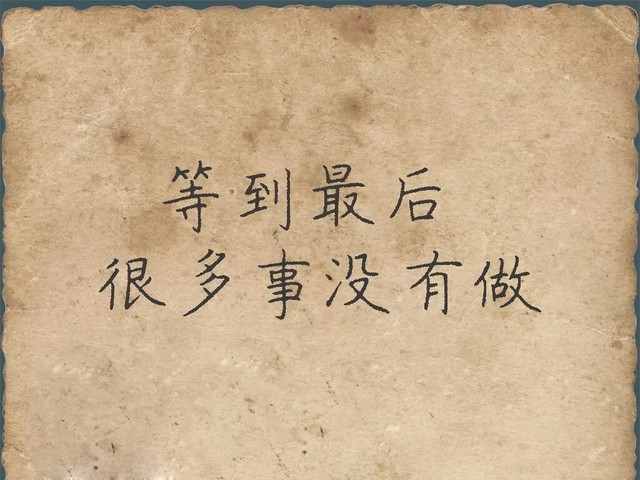 等到最后
很多事没有做